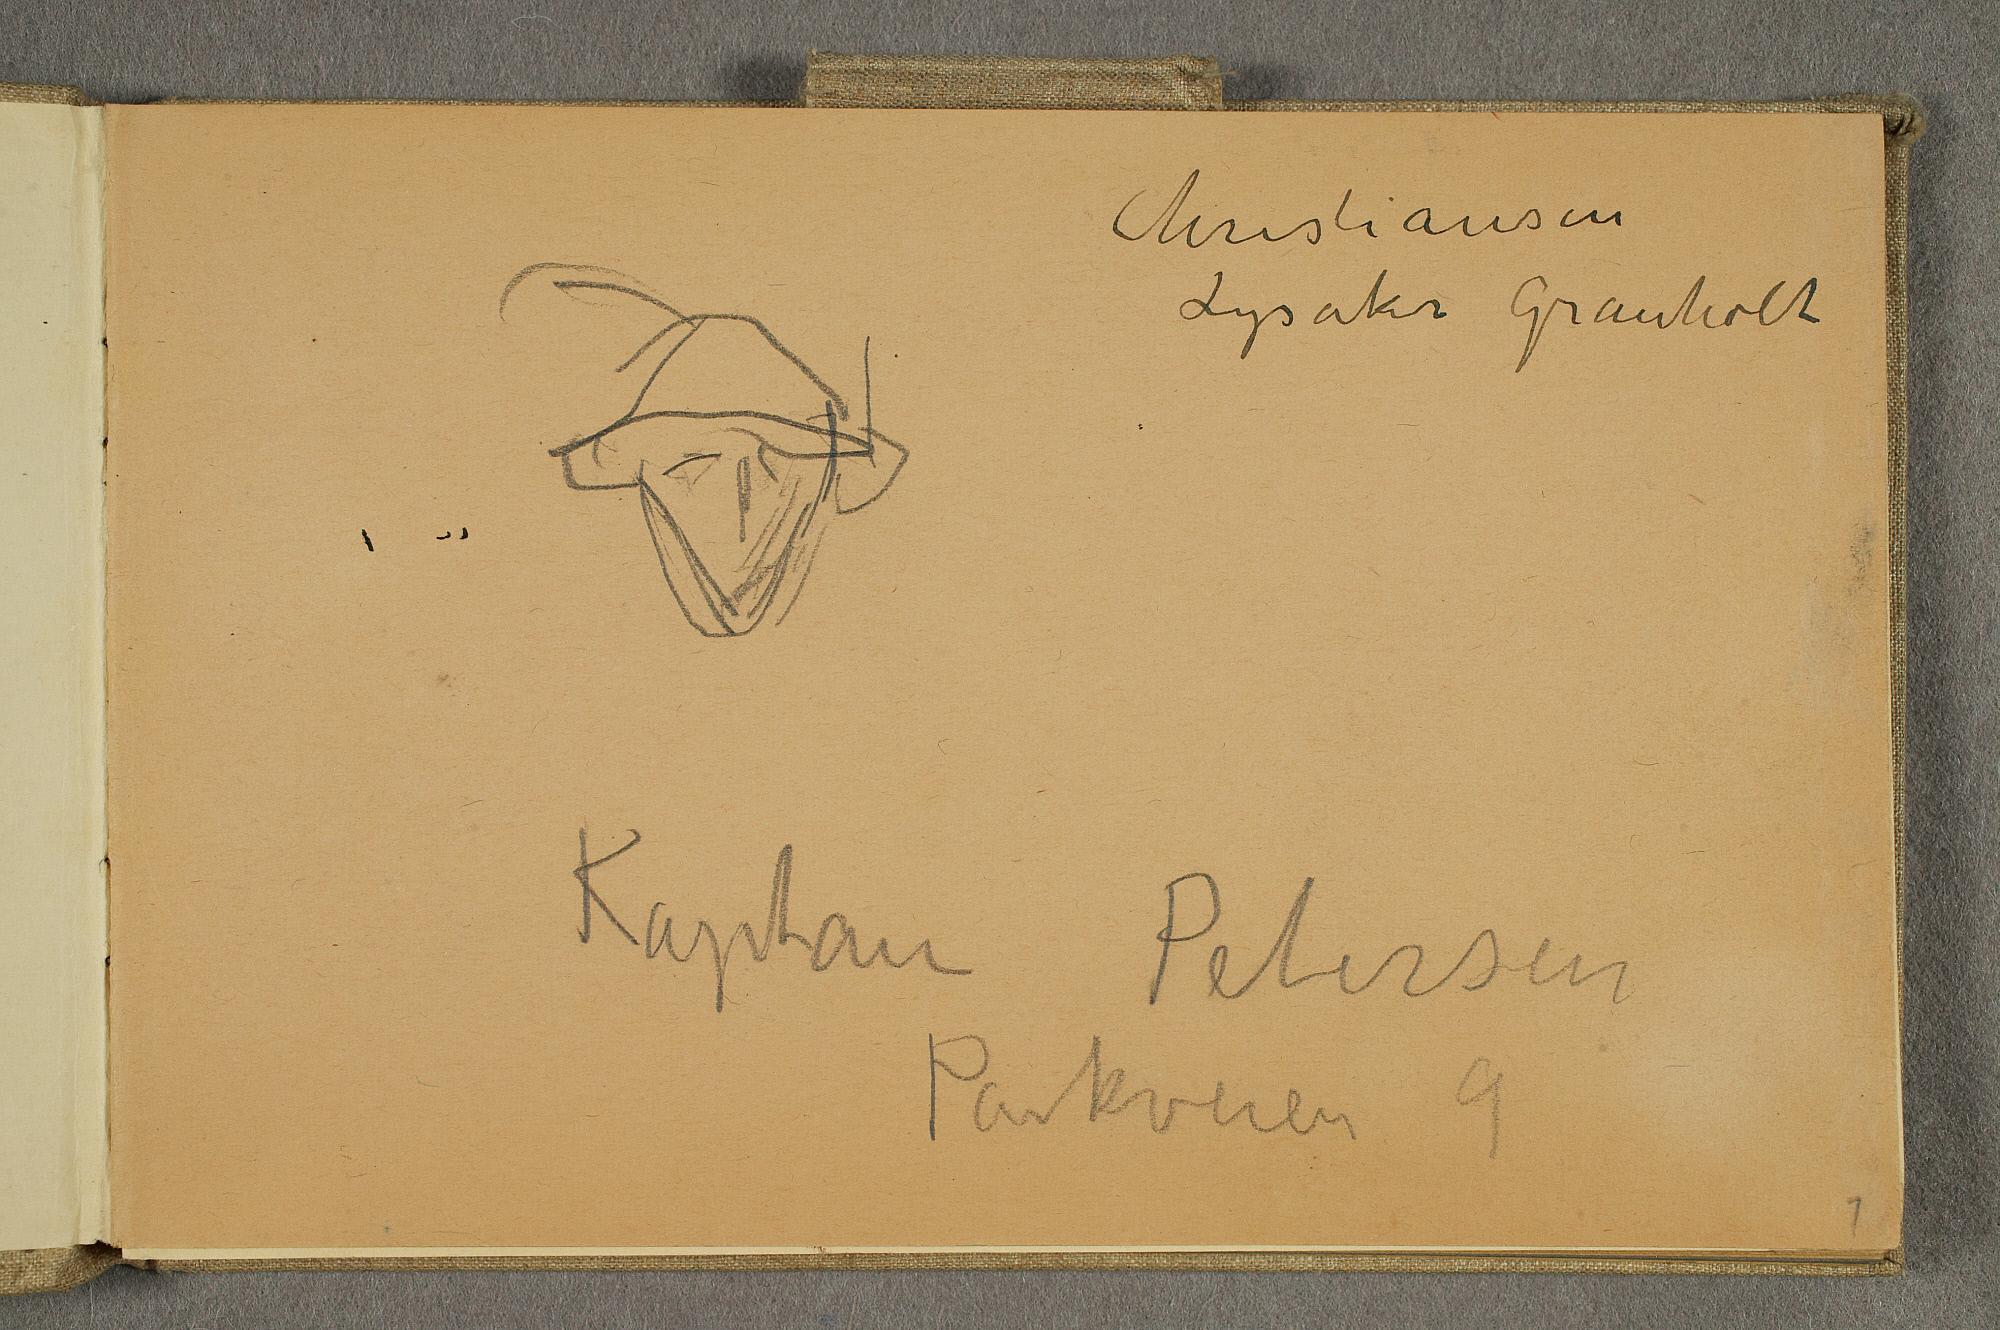 Christiansen
Lysaker Granholt
Kaptan Petersen
Parkveien 9
1